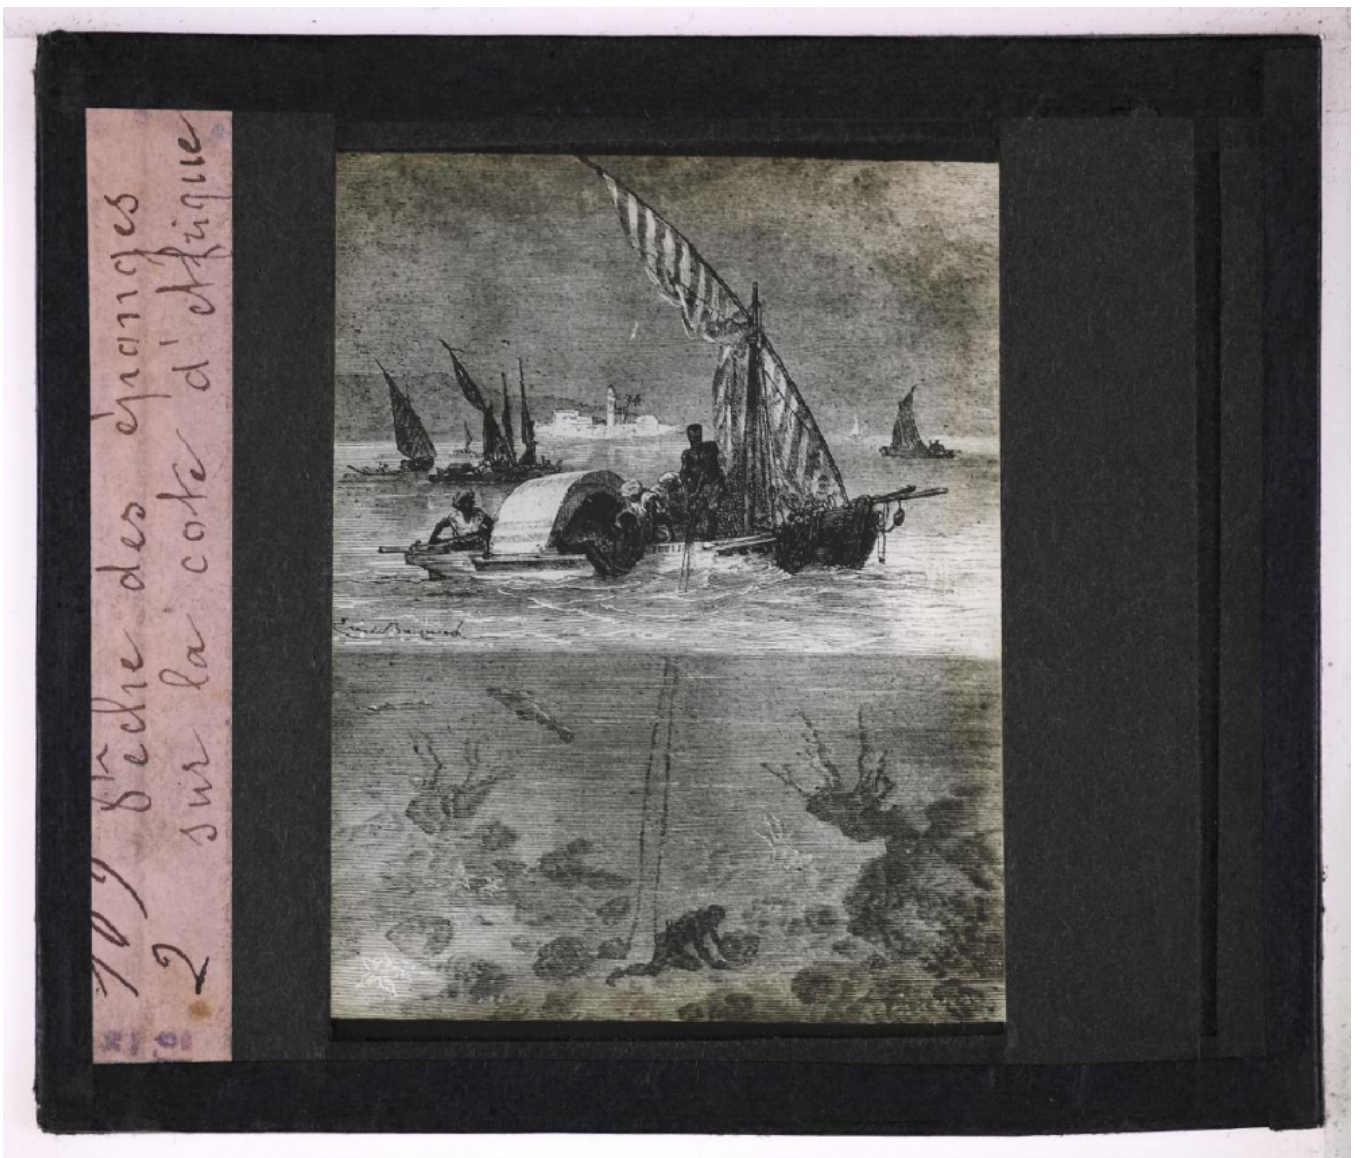 Pêche des éponges
2 sur la cote d'Afrique